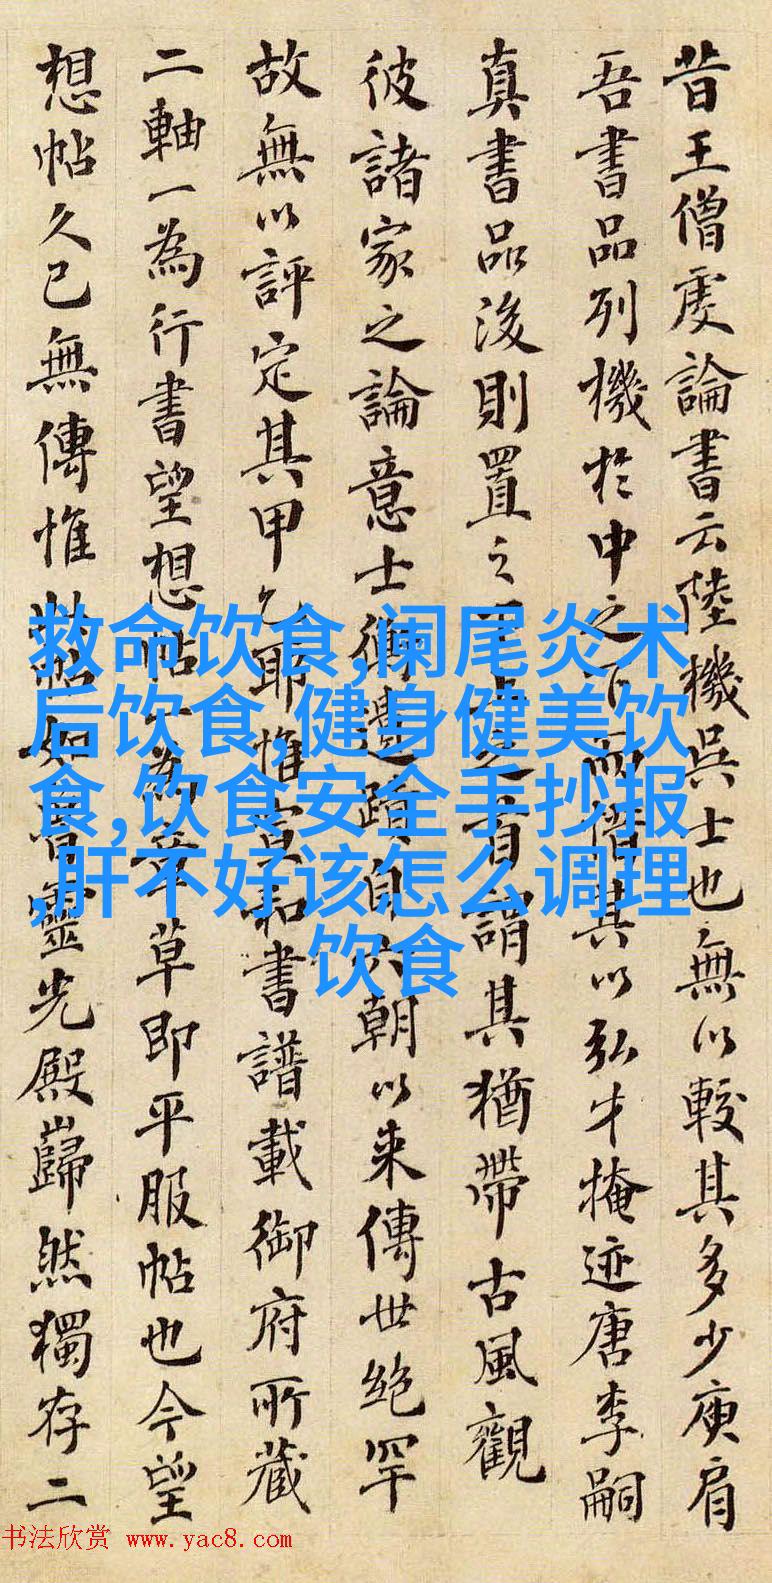 昔王僧虔論書云陸機吳士也無以較其多少庾肩
吾書品列機於中之下而惜其以弘才掩迹唐李嗣
真書品後則置之下上之首謂其猶帶古風觀
彼諸家之論意士衡遺蹟自六朝以來傳世絕罕
故無以評定其甲乙耶惟宣和書譜載御府所藏
二軸一為行書望想帖一為章草即平服帖也今望
想帖久已無傳惟此帖如魯靈光殿巋然獨存二
救命饮食,阑尾炎术
后饮食,健身健美饮
食,饮食安全手抄报
,肝不好该怎么调理
饮食
书法欣赏 www.yac8.com